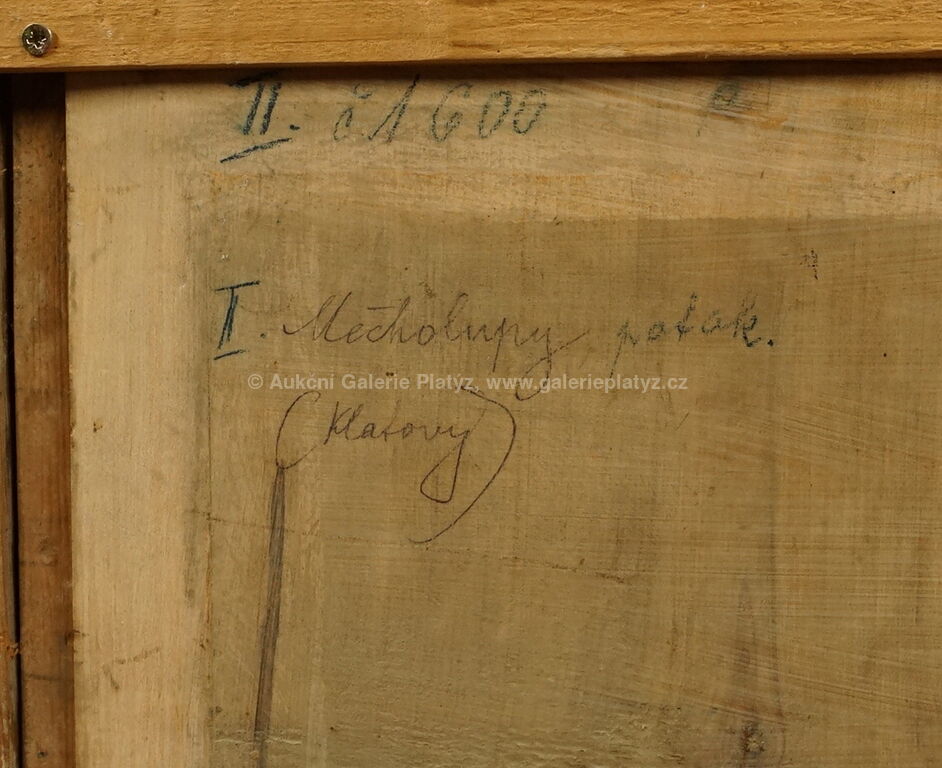 II. č 1600
I. Mečholupy potok.
© Aukční Galerie Platýz, www.galerieplatyz.cz
(Klatovy)